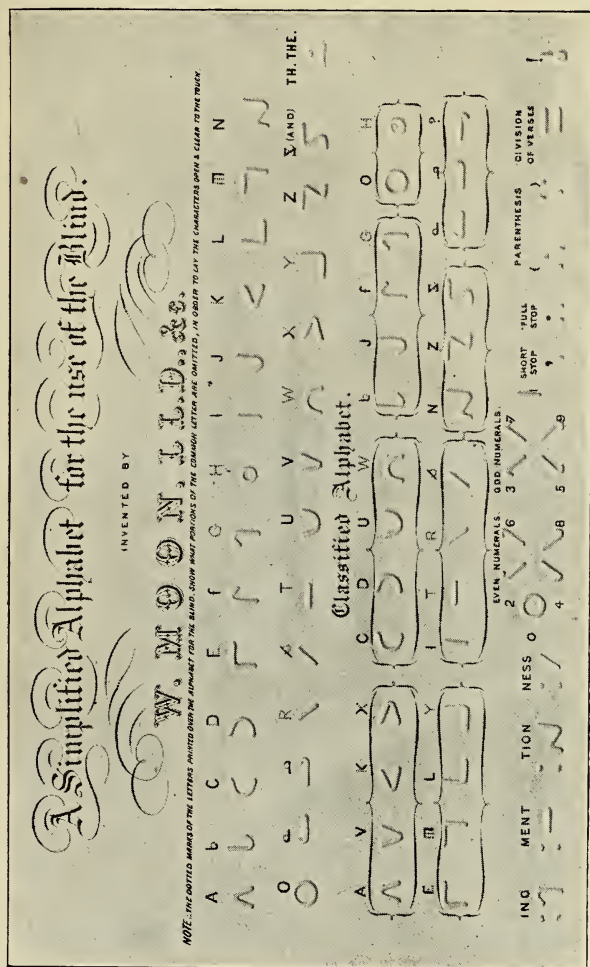 A Simplified Alphabet for the use of the Blind.
INVENTED BY
W. MOON. LL.D. &c.
NOTE: THE DOTTED MARKS OF THE LETTERS PRINTED OVER THE ALPHABET FOR THE BLIND, SHOW WHAT PORTIONS OF THE COMMON LETTER ARE OMITTED, IN ORDER TO LAY THE CHARACTERS OPEN & CLEAR TO THE TOUCH.
A b C D E f G H I J K L m N
O R T U V W X Y Z & (AND) TH. THE.
Classified Alphabet.
A V K X C D U W b J f G O H
E m L Y I T R N Z & ?
ING MENT TION NESS
EVEN NUMERALS. ODD NUMERALS.
0 2 6 3 7
4 8 5 9
SHORT STOP FULL STOP PARENTHESIS DIVISION OF VERSES
, . ( ) !